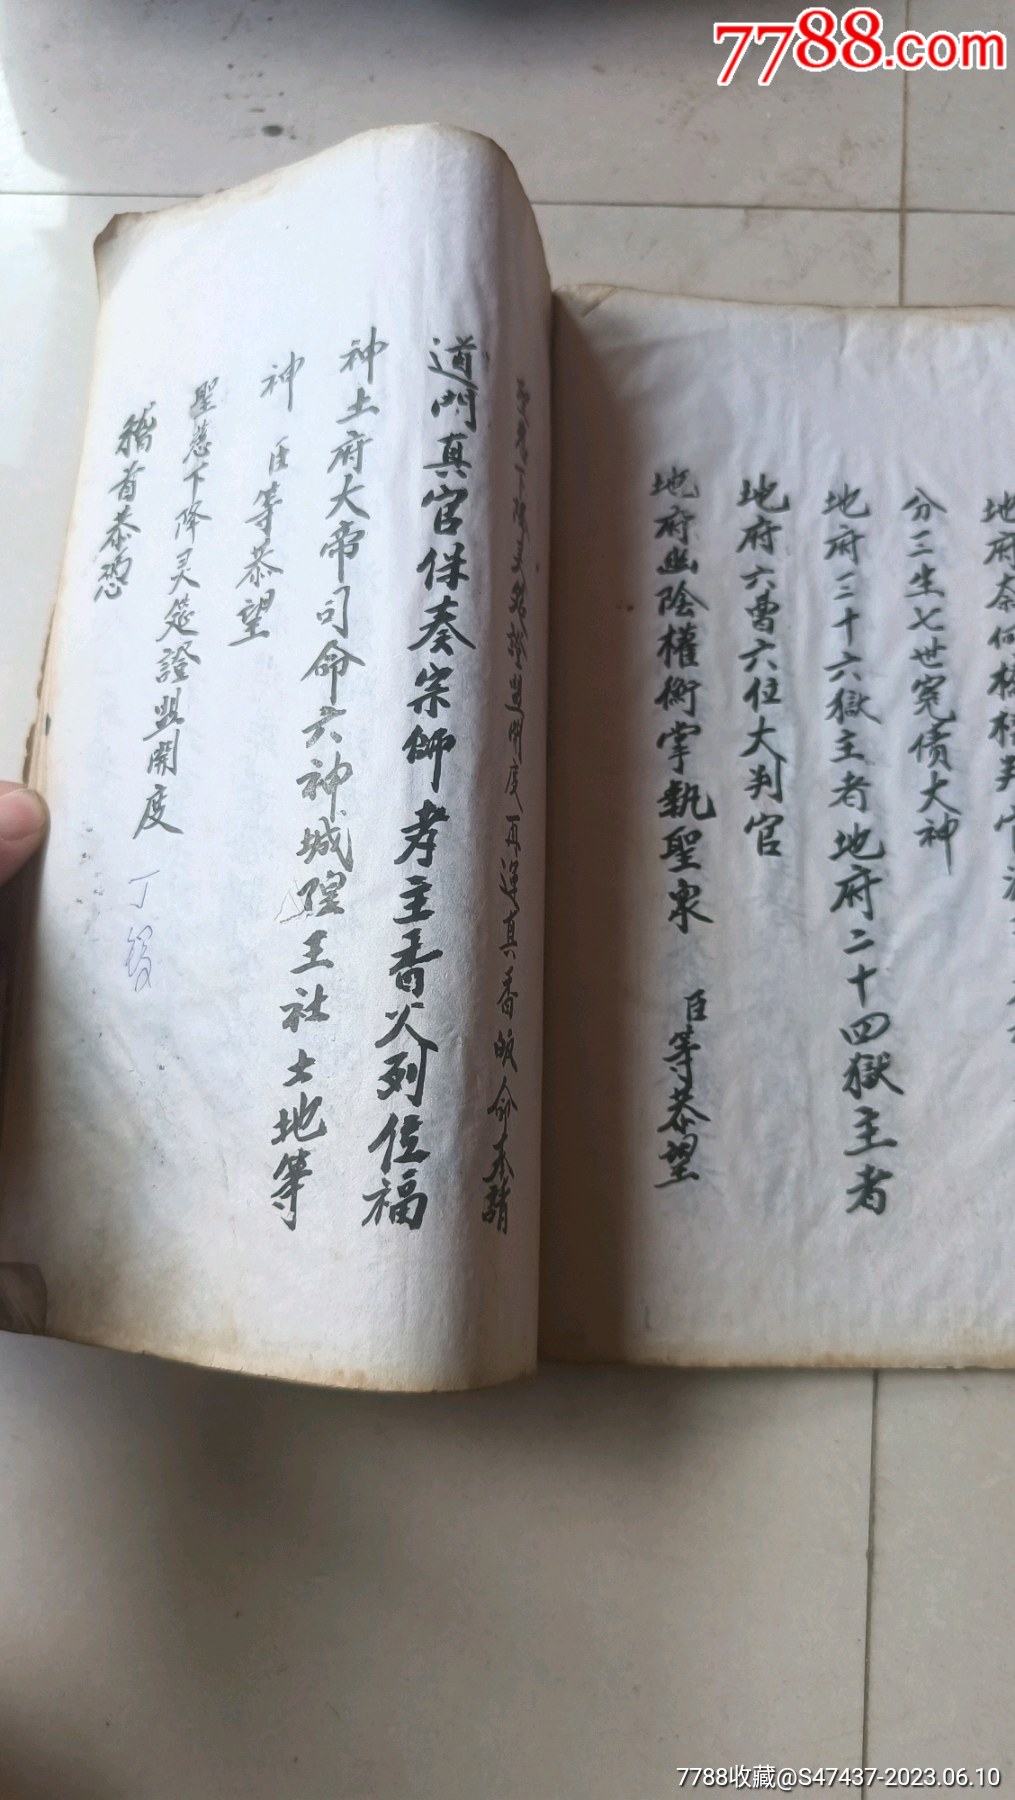 7788.com
地府奈何橋
分三生七世冤债大神
地府三十六獄主者地府二十四獄主者
地府六曹六位大判官
地府幽陰權衡掌執聖眾 臣等恭望
下降灵筵證盟開度再運真香皈命奉請
道門真官保奏宗師孝主香火列位福
神土府大帝司命六神城隍王社土地等
神 臣等恭望
聖慈下降灵筵證盟開度
稽首恭
丁
7788收藏@S47437-2023.06.10